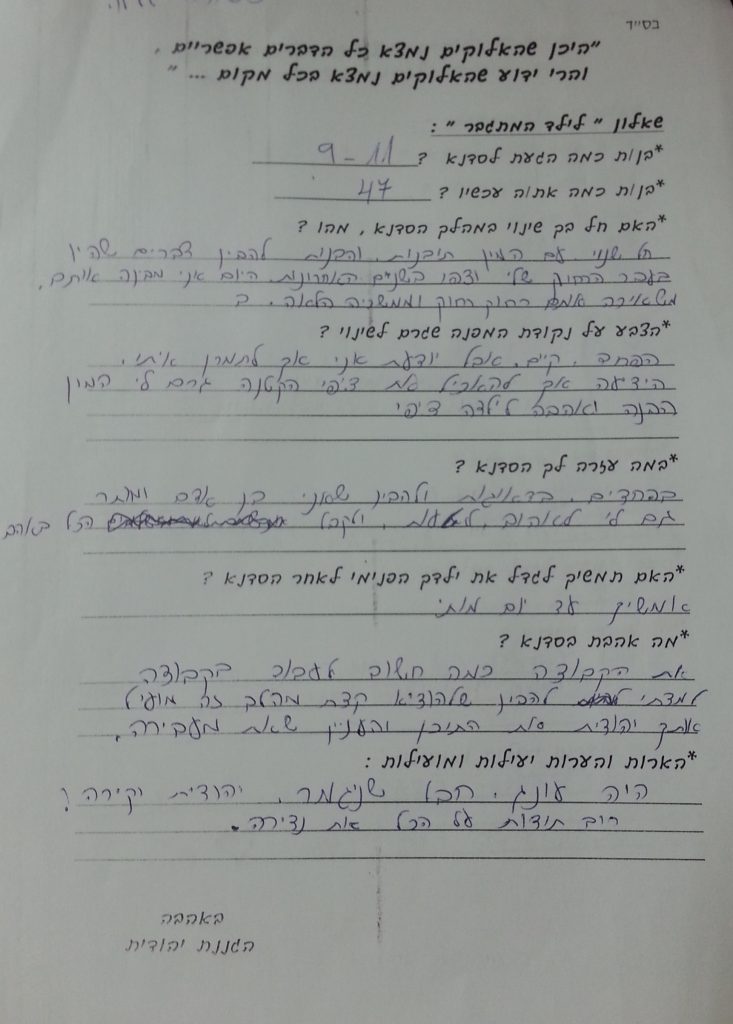 בס״ד
״היכן שהאלוקים נמצא כל הדברים אפשריים ,
והרי ידוע שהאלוקים נמצא בכל מקום ... ״
שאלון ״ לילד המתגבר ״ :
*בן/ת כמה הגעת לסדנא ? 9 - 11
*בן/ת כמה את/ה עכשיו ? 47
*האם חל בך שינוי במהלך הסדנא , מהו ?
חל שנוי עם המון תובנות, והבנות להבין דברים שהיו
בעבר הרחוק שלי בשנים האחרונות. היום אני מבינה אותם,
משאירה אותם רחוק רחוק וממשיכה הלאה.
*הצבע על נקודת המפנה שגרם לשינוי ?
הפחד, קיים, אבל יודעת אני איך לתמרן איתו,
הידיעה איך להאכיל את ציפי הקטנה גרם לי המון
הבנה ואהבה לילדה ציפי
*במה עזרה לך הסדנא ?
בפחדים, בדאגות ולהבין שאני בן אדם ומותר
גם לי לאהוב, לטעות, ולקבל הכל באהבה
*האם תמשיך לגדל את ילדך הפנימי לאחר הסדנא ?
אמשיך עד יום מותי
*מה אהבת בסדנא ?
את הקבוצה כמה חשוב לעבוד בקבוצה
למדתי להבין שלהוציא קצת מהלב זה מועיל
אותך יהודית ואת התוכן והעניין שאת מעבירה.
*הארות והערות יעילות ומועילות :
היה עונג, חבל שנגמר, יהודית יקירה !
רוב תודות על הכל את נדירה.
באהבה
הגננת יהודית